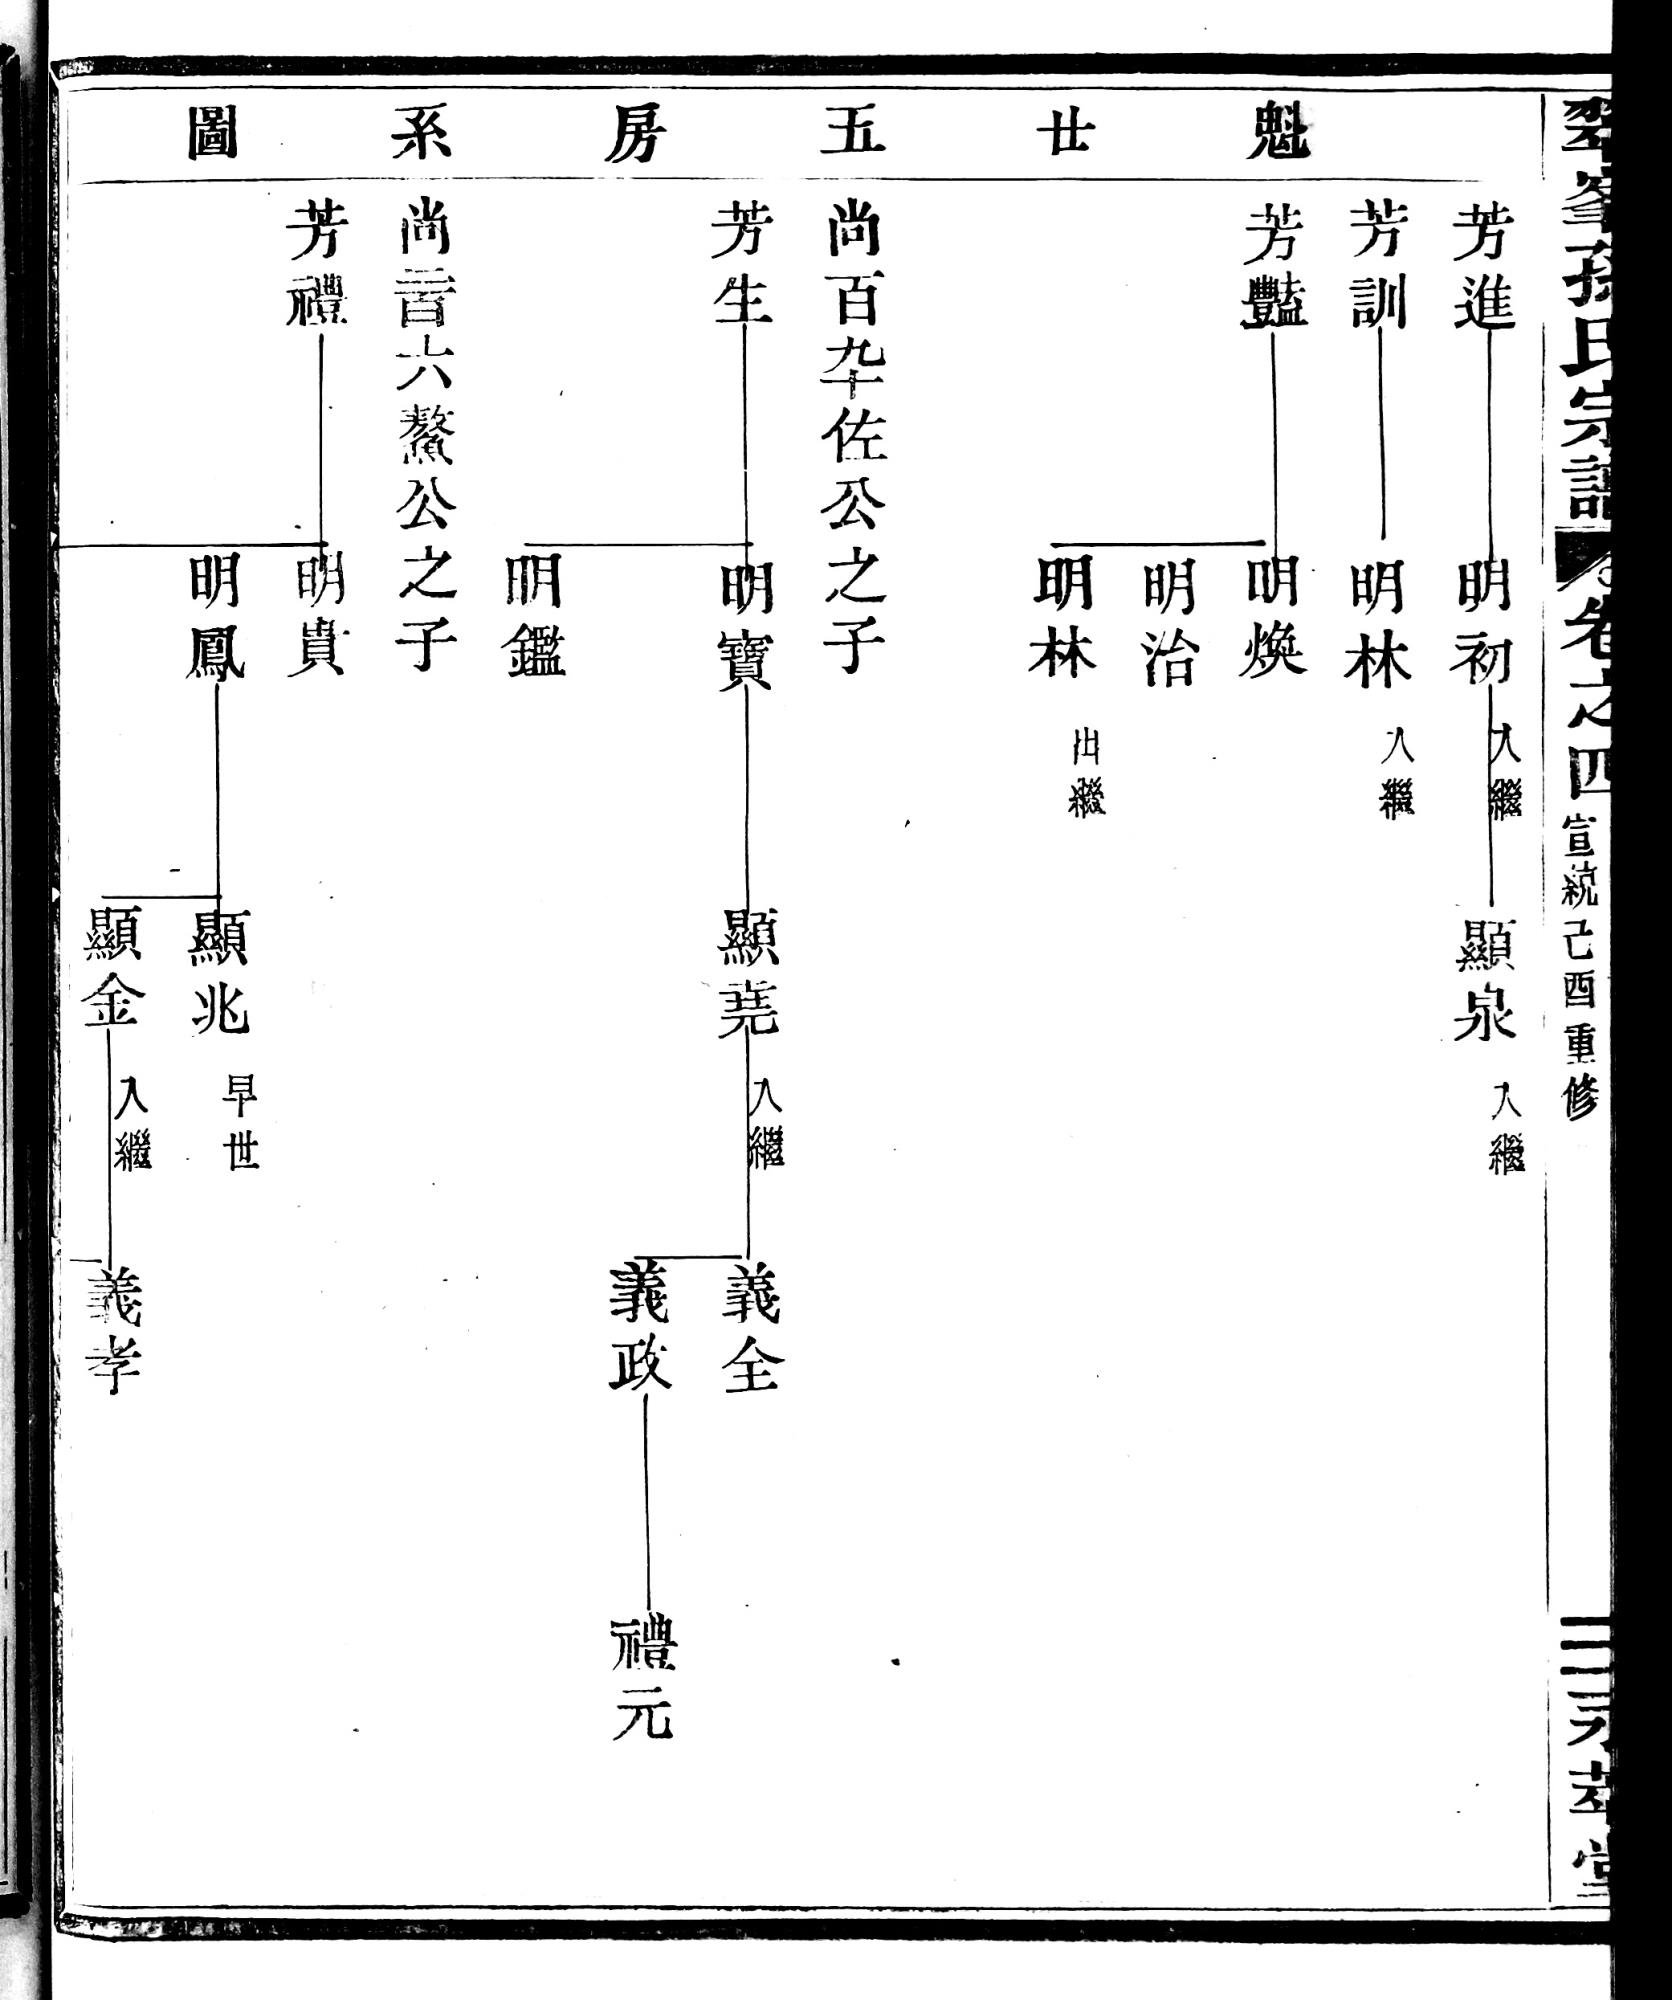 翠峯孫氏宗譜
卷之四
宣統己酉重修
魁廿五房系圖
芳進
明初 入繼
顯泉 入繼
芳訓
明林 入繼
芳豔
明煥
明治
明林 出繼
尚百九十佐公之子
芳生
明寶
顯堯 入繼
義全
義政
禮元
明鑑
尚二百六鰲公之子
芳禮
明貴
明鳳
顯兆 早世
顯金 入繼
義孝